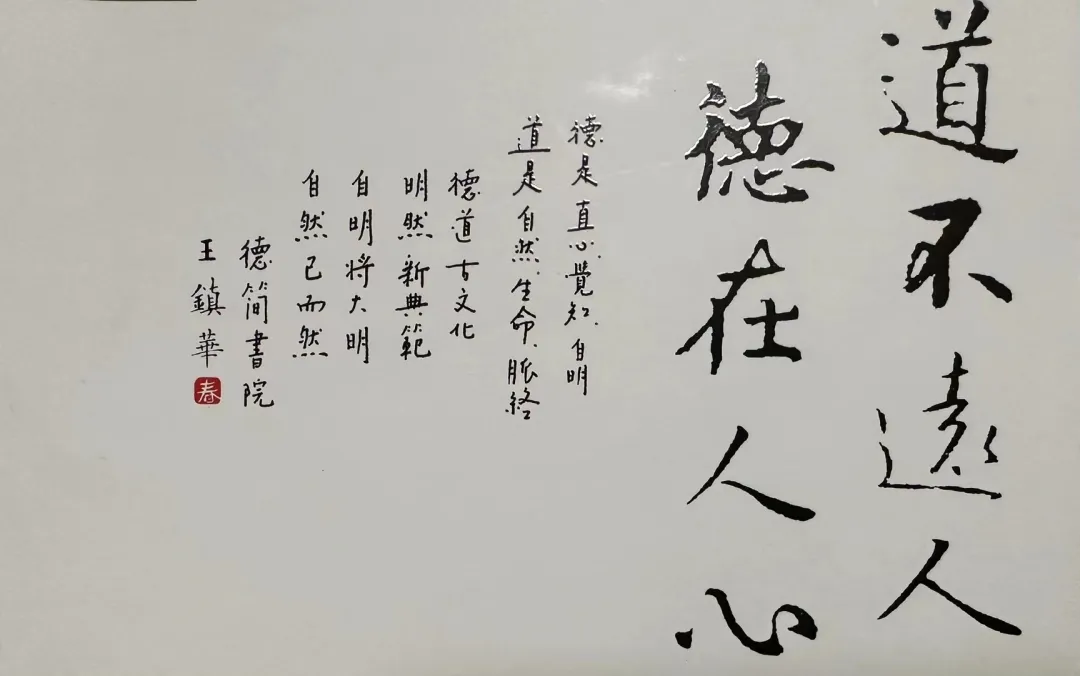 道不遠人
德在人心
德是直心、覺知、自明
道是自然、生命、脈絡
德道古文化
明然新典範
自明將大明
自然已而然
德简書院
王鎮華
春